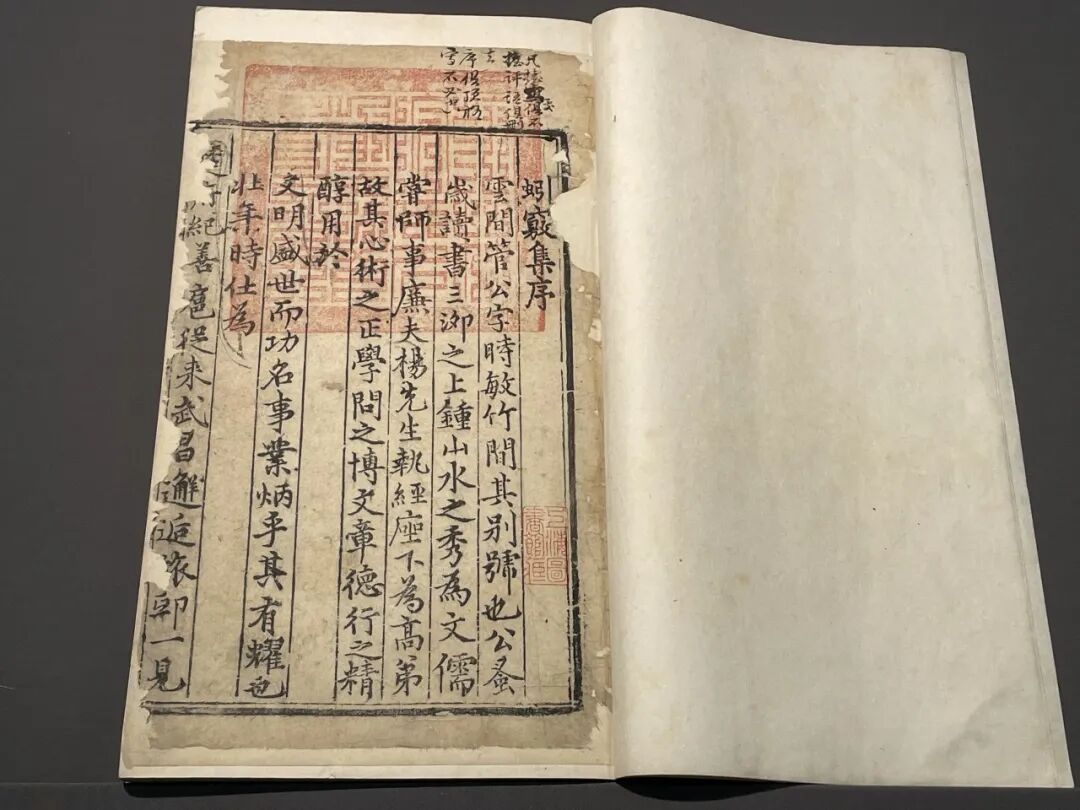 蚓竅集序
雲間管公字時敏竹間其别號也公蚤
歲讀書三泖之上鍾山水之秀為文儒
嘗師事廉夫楊先生執經座下為髙第
故其心術之正學問之博文章德行之精
醇用於
文明盛世而功名事業炳乎其有耀也
壯年時仕為
紀善扈從来武昌邂逅旅邸一見
上海圖
書館藏